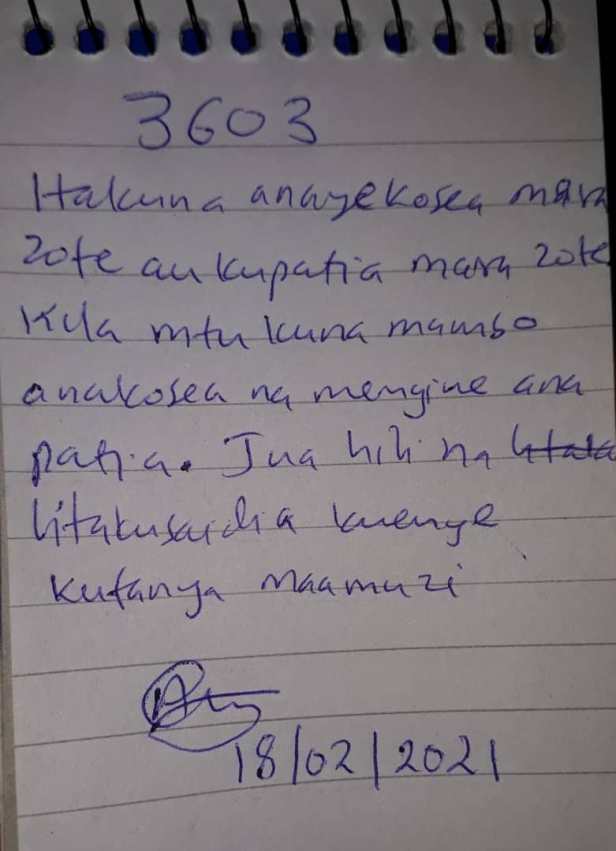 3603
Hakuna anayekosea mara
zote au kupatia mara zote
Kila mtu kuna mambo
anakosea na mengine ana
patia. Jua hili na
litakusaidia kwenye
kufanya maamuzi
18/02/2021